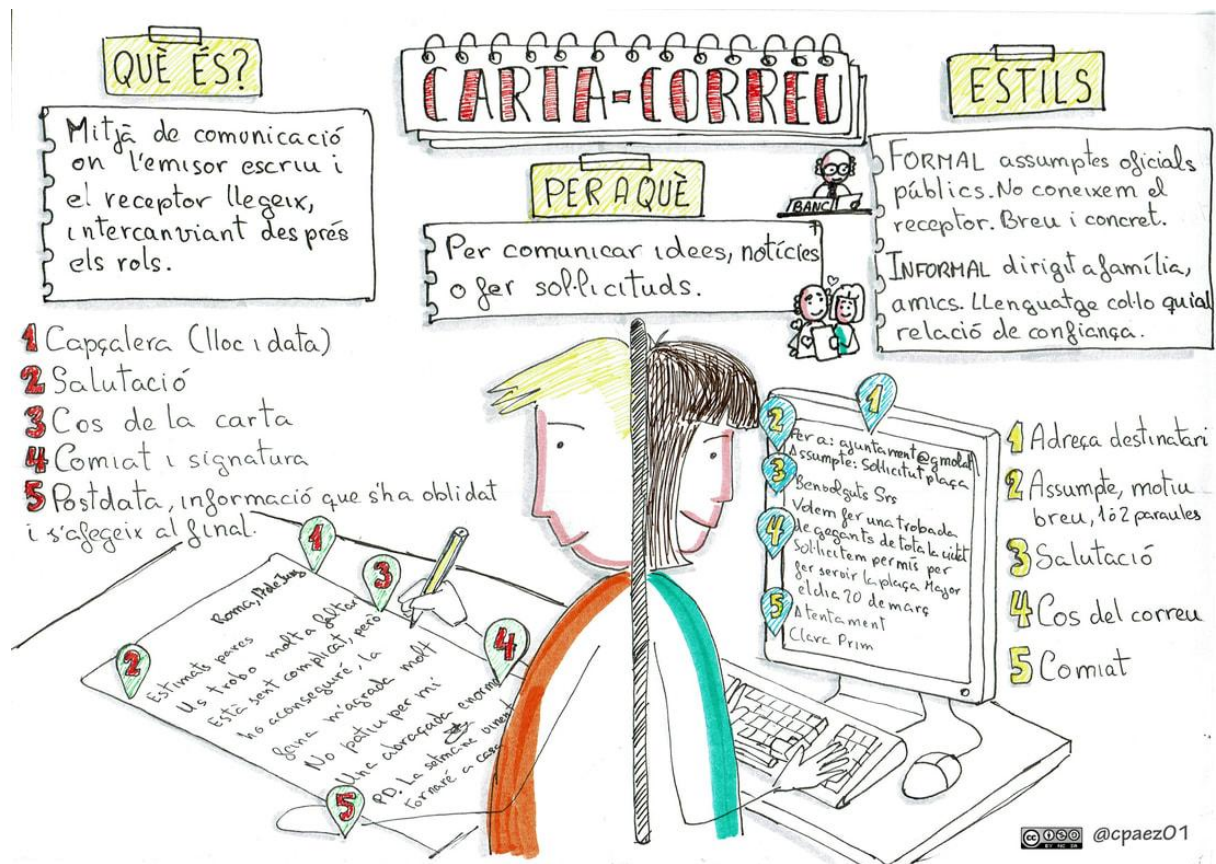 QUÈ ÉS?
Mitjà de comunicació
on l'emisor escriu i
el receptor llegeix,
intercanviant després
els rols.
CARTA-CORREU
PER A QUÈ
Per comunicar idees, notícies
o fer sol·licituds.
ESTILS
FORMAL assumptes oficials
públics. No coneixem el
receptor. Breu i concret.
INFORMAL dirigit a família,
amics. Llenguatge col·loquial
relació de confiança.
BANC
1 Capçalera (lloc i data)
2 Salutació
3 Cos de la carta
4 Comiat i signatura
5 Postdata, informació que s'ha oblidat
i s'afegeix al final.
1
3
2
4
5
Roma,
Estimats pares
Us trobo molt a faltar
Està sent complicat, però
ho aconseguiré, la
feina m'agrada molt
No patiu per mi
Una abraçada enorm
PD. La setmana vinent
tornaré a casa
1
2
3
4
5
Per a: ajuntament@gmol.at
Assumpte: Sol·licitut plaça
Benvolguts Srs
Volem fer una trobada
de gegants de tota la ciutat
Sol·licitem permís per
fer servir la plaça Major
el dia 20 de març
Atentament
Clara Prim
1 Adreça destinatari
2 Assumpte, motiu
breu, 1 ó 2 paraules
3 Salutació
4 Cos del correu
5 Comiat
cc BY NC SA @cpaez01